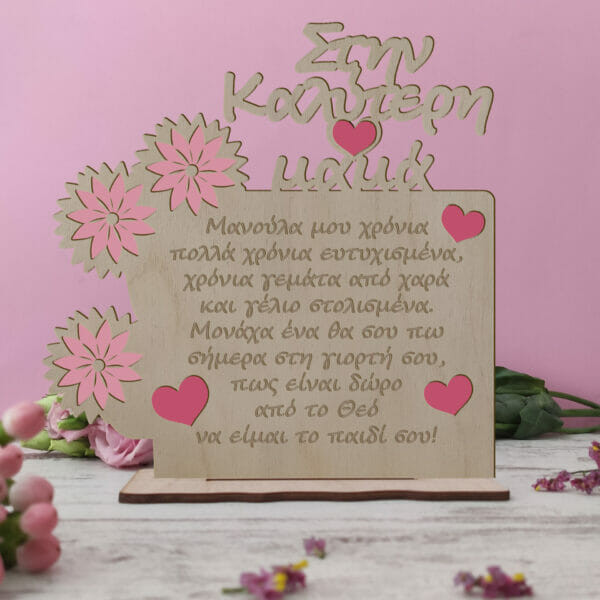 Στην
Καλύτερη
μαμά
Μανούλα μου χρόνια
πολλά χρόνια ευτυχισμένα,
χρόνια γεμάτα από χαρά
και γέλιο στολισμένα.
Μονάχα ένα θα σου πω
σήμερα στη γιορτή σου,
πως είναι δώρο
από το Θεό
να είμαι το παιδί σου!